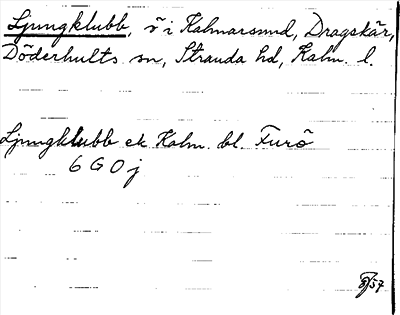 Ljungklubb, ö i Kalmarsund, Dragskär,
Döderhults sn, Stranda hd, Kalm. l.
Ljungklubb ek Kalm. bl. Furö
6 G 0 j
57